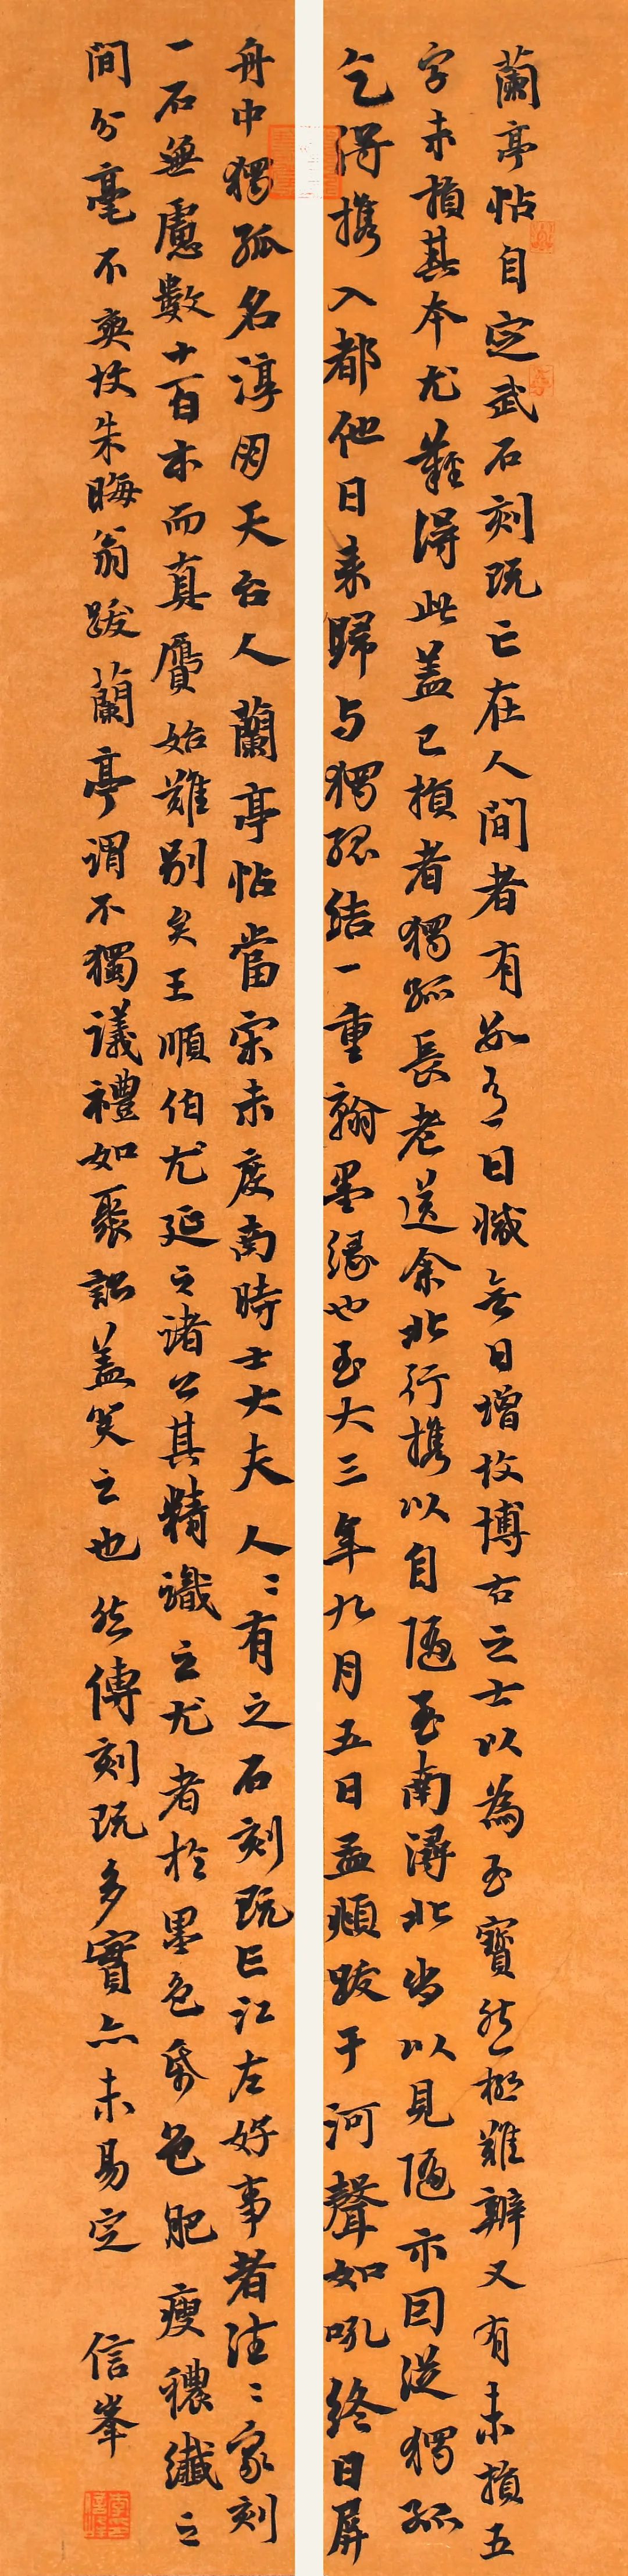 蘭亭帖自定武石刻既亡在人間者有數有日減無日增故博古之士以為至寶然極難辨又有未損五
字未損其本尤難得此蓋已損者獨孤長老送余北行攜以自隨至南潯北出以見隨亦目從獨孤
乞得攜入都他日來歸与獨孤結一重翰墨緣也至大三年九月五日孟頫跋于河聲如吼終日屏
舟中獨孤名淳朋天台人蘭亭帖當宋未度南時士大夫人人有之石刻既亡江左好事者往往家刻
一石無慮數十百本而真贗始難别矣王順伯尤延之諸公其精識之尤者於墨色紙色肥瘦穠纖之
間分毫不爽故朱晦翁跋蘭亭謂不獨議禮如聚訟蓋笑之也然傳刻既多實亦未易定
信峯